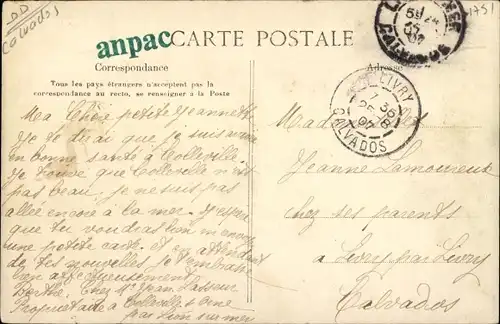 DD
Calvados
1751
anpac
CARTE POSTALE
Correspondance
Adresse
Tous les pays étrangers n'acceptent pas la
correspondance au recto, se renseigner à la Poste
LIVRY
CALVADOS
CALVADOS
Ma Chère petite Jeannette
Je te dirai que je suis arrivée
en bonne santé à Colleville.
Je trouve que Colleville n'est
pas beau, je ne suis pas
allée encore à la mer. J'espère
que tu voudras bien m'envoyer
une petite carte. et en attendant
de tes nouvelles je t'embrasse
bien affectueusement
Berthe. Chez Mr Jean Lasseur
Propriétaire à Colleville s Orne
par Lion sur mer
Jeanne Lamoureux
chez ses parents
à Livry par Livry
Calvados